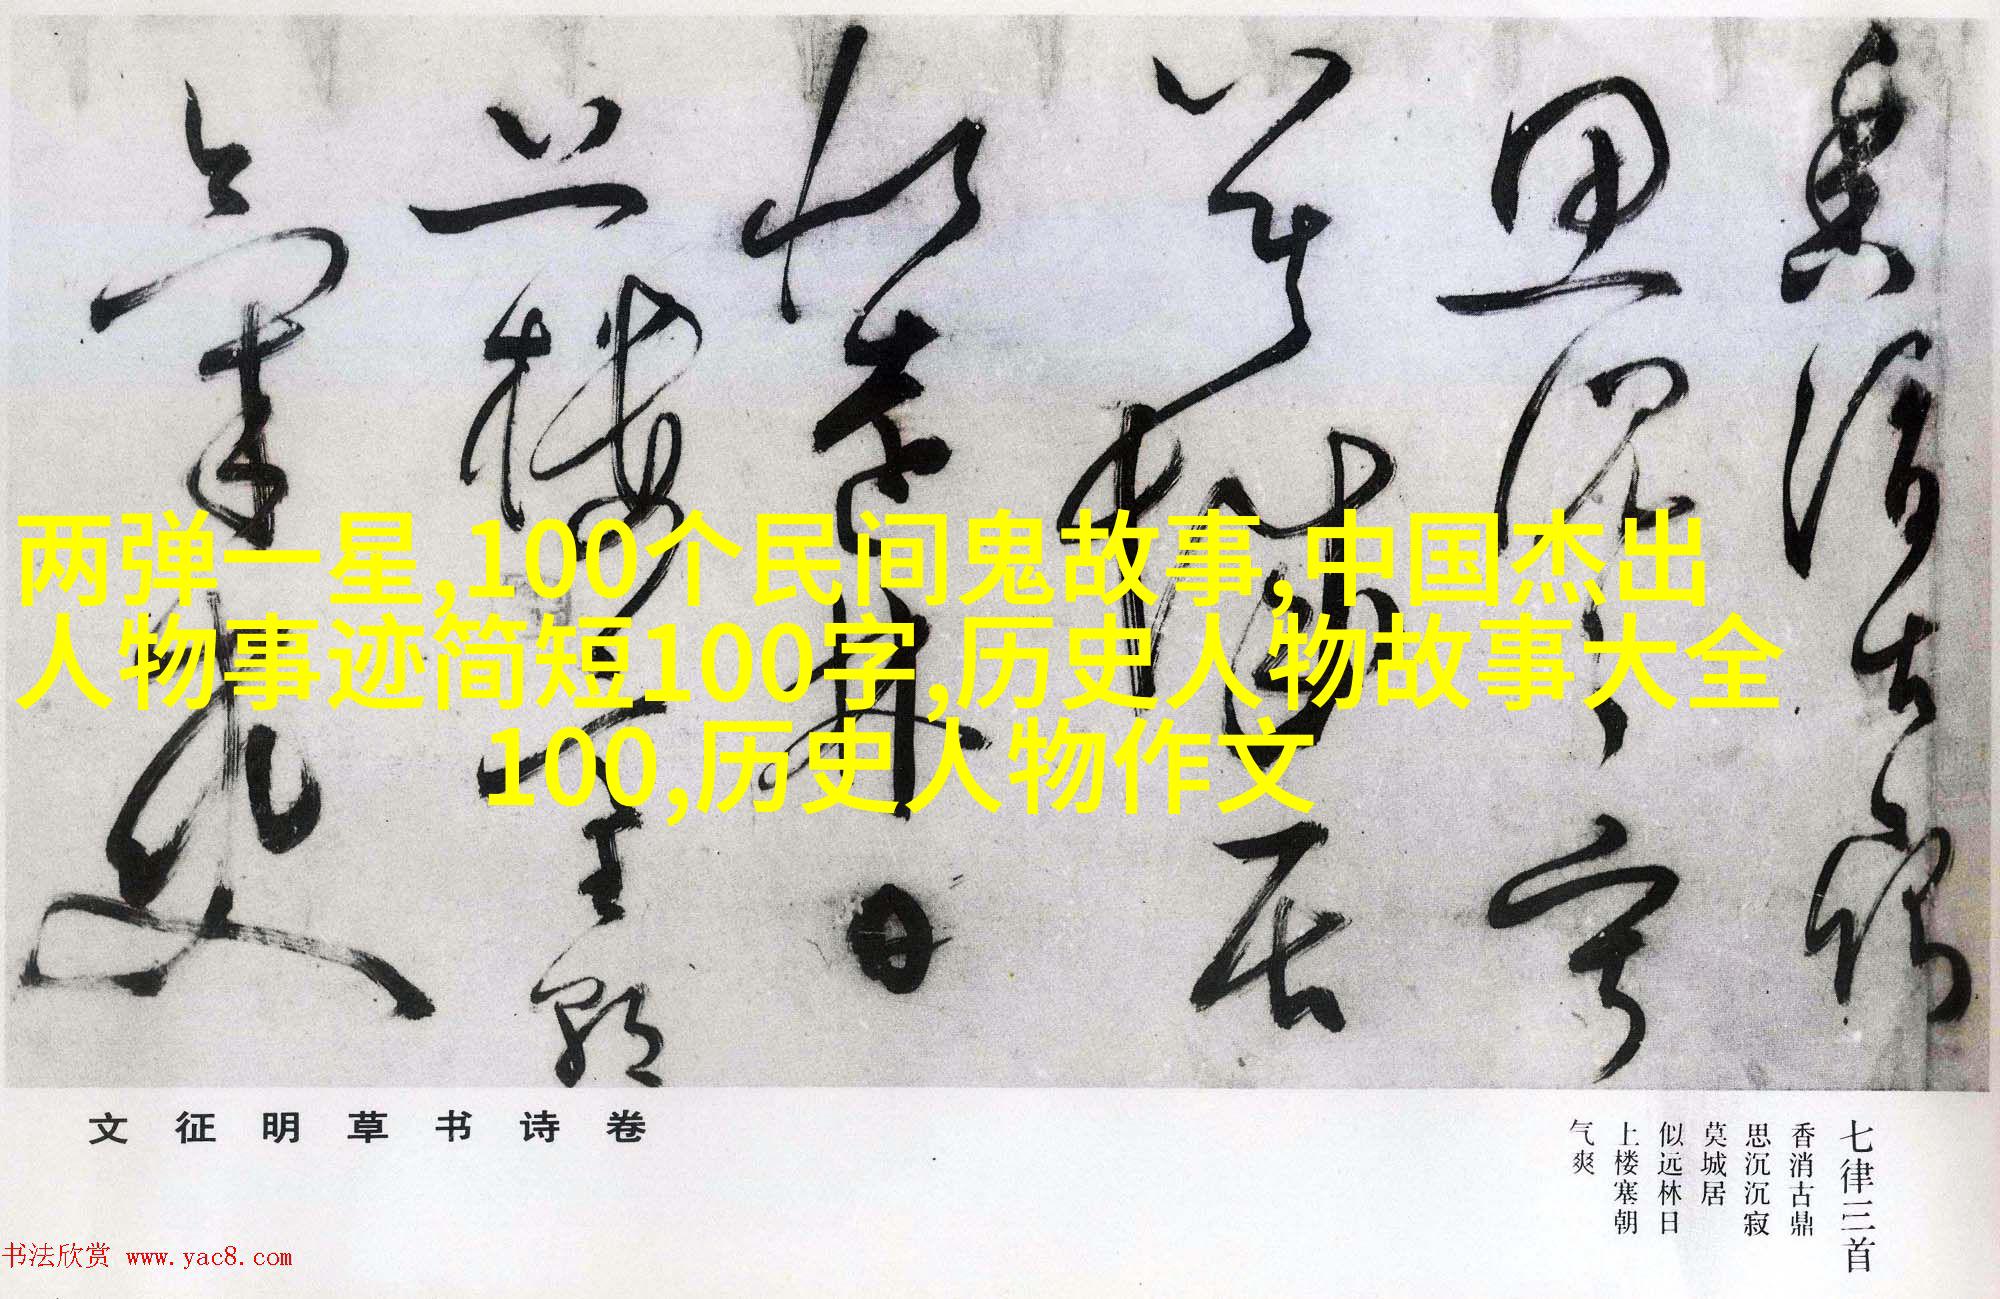 香消古鼎
思沉沉寂
莫城居
似远林日
上楼塞朝
气爽
两弹一星,100个民间鬼故事,中国杰出
人物事迹简短100字,历史人物故事大全
100,历史人物作文
文征明草书诗卷
七律三首
香消古鼎
思沉沉寂
莫城居
似远林日
上楼塞朝
气爽
书法欣赏 www.yac8.com